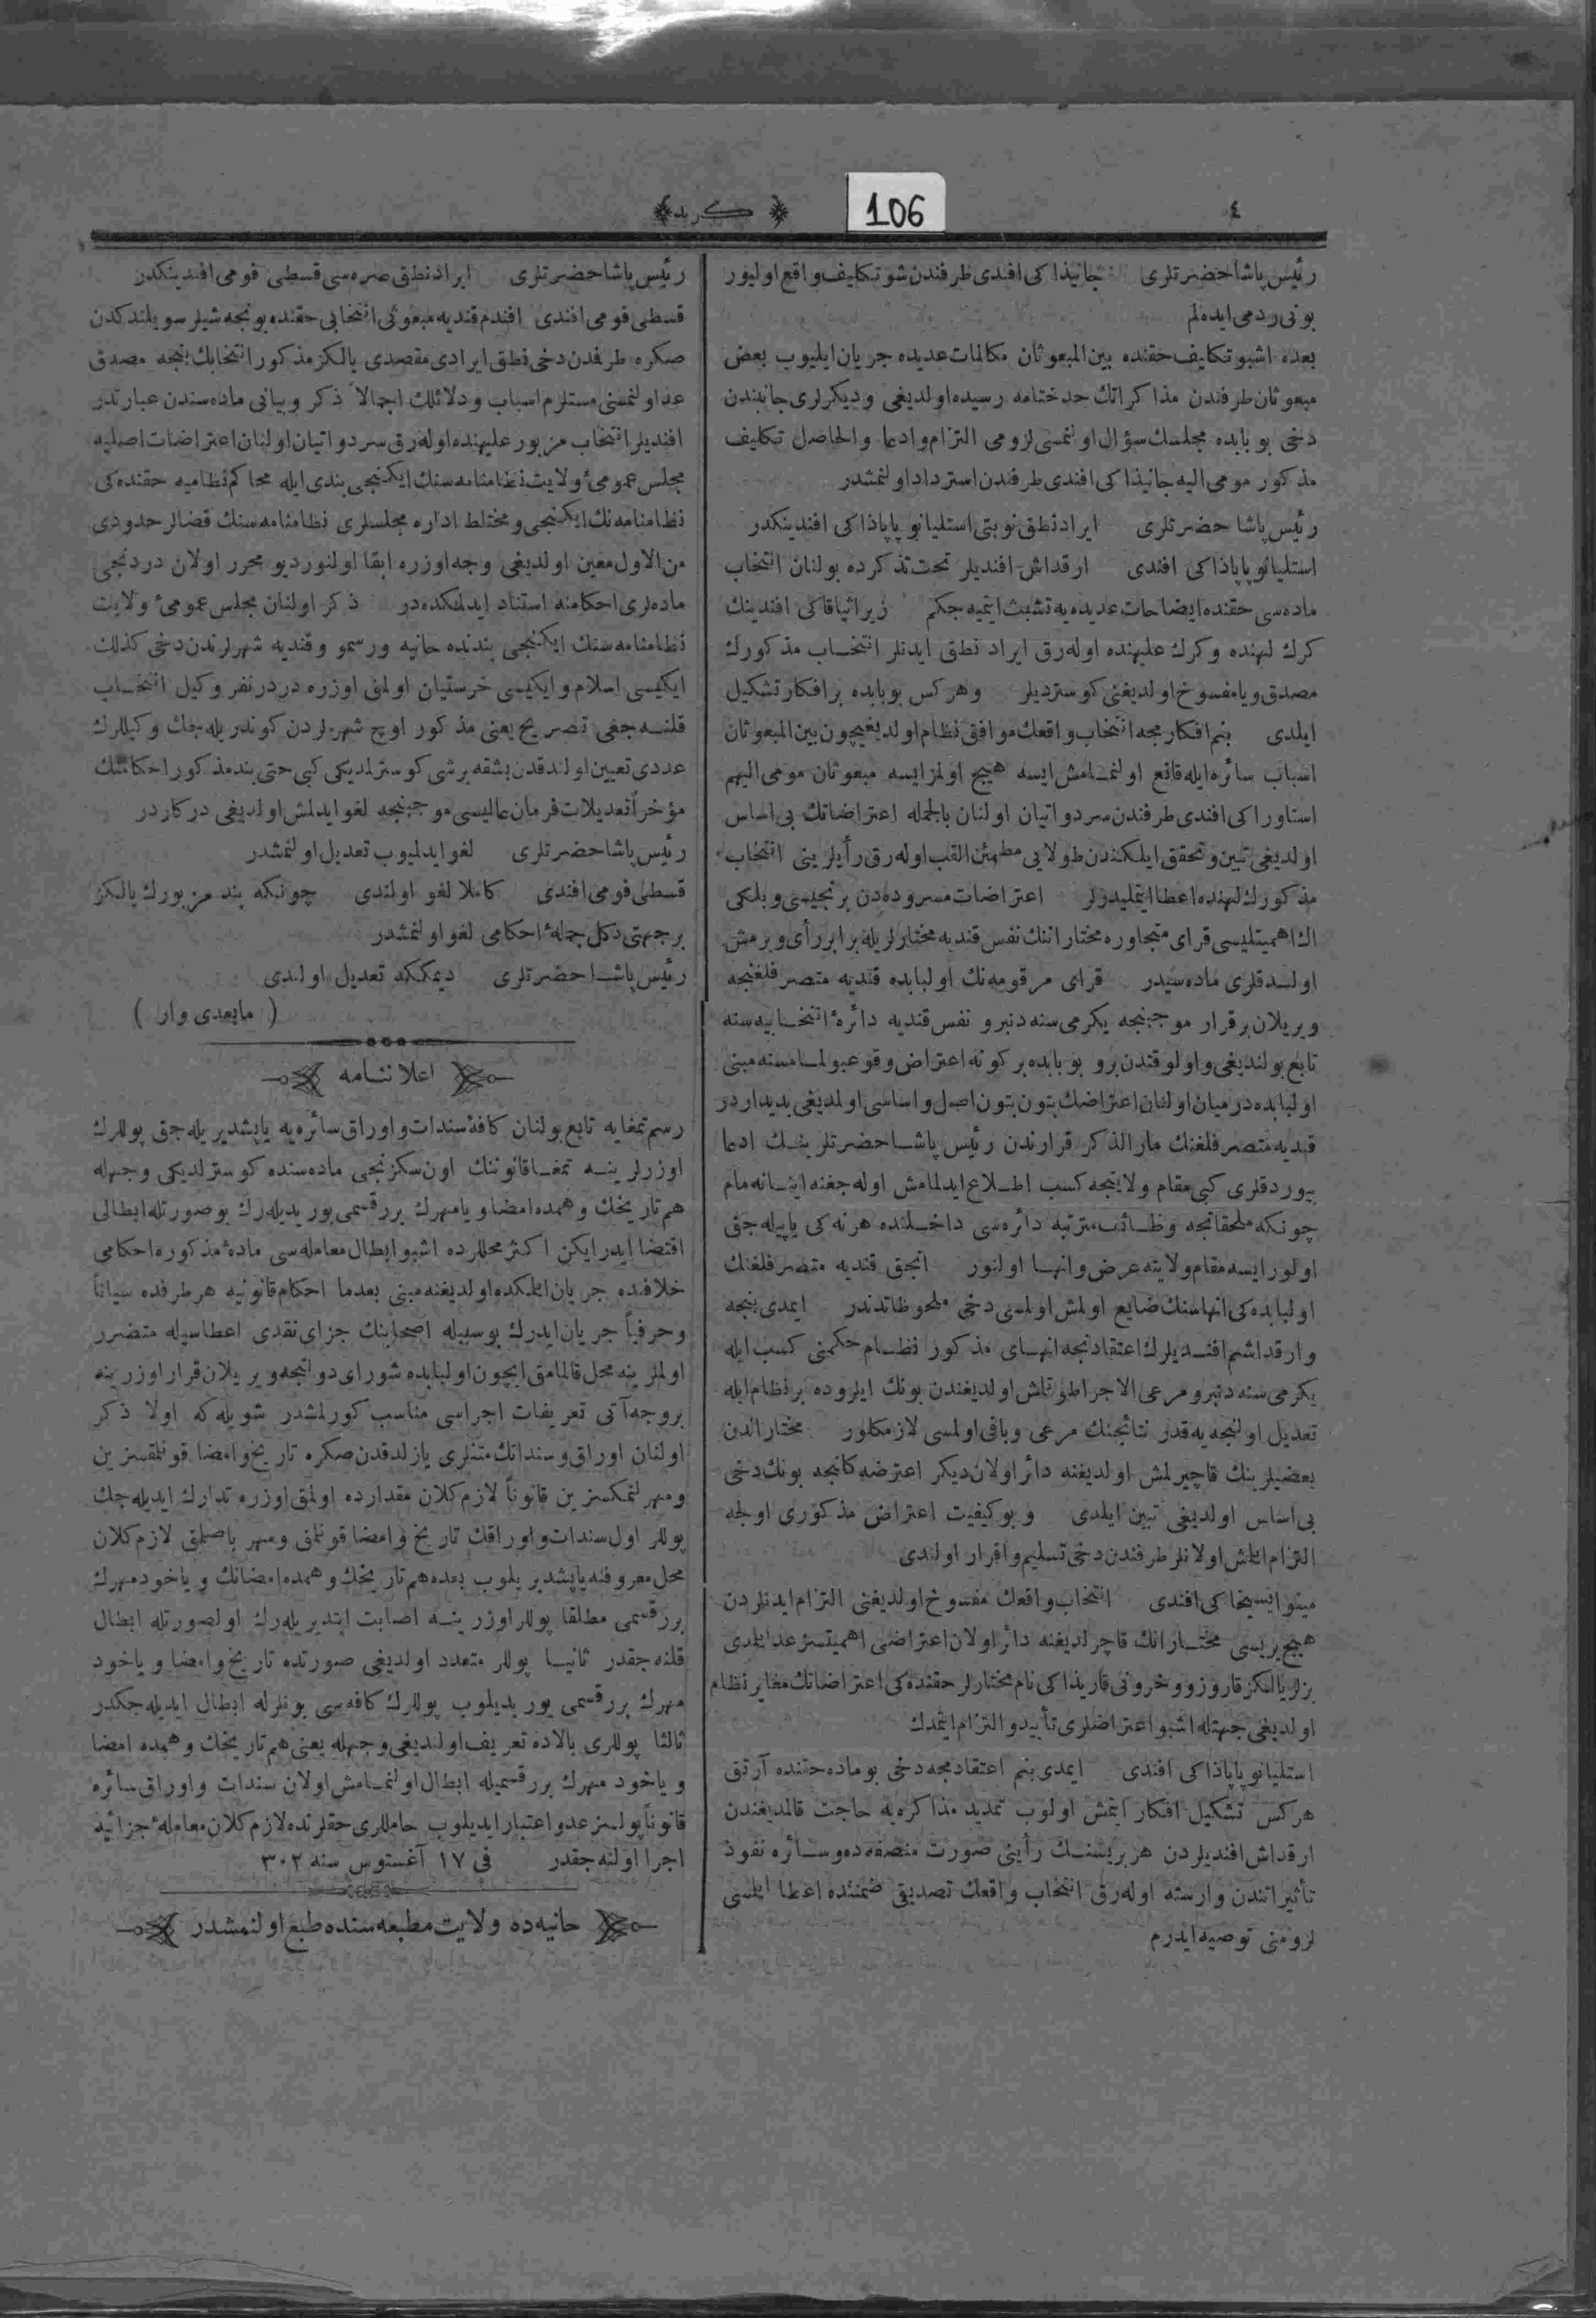 ٤
106
﴿ كريد ﴾
رئيس پاشا حضرتلری جانیذاکی افندی طرفندن شو تکلیف واقع اولیور
بونی رد می ایده‌لم
بعده اشبو تکلیف حقنده بین المبعوثان مکالمات عدیده جریان ایلیوب بعض
مبعوثان طرفندن مذاکراتك حد ختامه رسیده اولدیغی و دیکرلری جانبندن
دخی بو بابده مجلسك سؤال اولنمسی لزومی التزام و ادعا و الحاصل تکلیف
مذکور مومی الیه جانیذاکی افندی طرفندن استرداد اولنمشدر
رئیس پاشا حضرتلری ایراد نطق نوبتی استلیانو پاپاذاکی افندینکدر
استلیانو پاپاذاکی افندی ارقداش افندیلر تحت تذکرده بولنان انتخاب
ماده‌سی حقنده ایضاحات عدیده‌یه تشبث ایتمیه‌جکم زیرا ثیاقاکی افندینك
کرك لهنده و کرك علیهنده اوله‌رق ایراد نطق ایدنلر انتخاب مذکورك
مصدق و یا مفسوخ اولدیغنی کوستردیلر و هرکس بو بابده بر افکار تشکیل
ایلدی بنم افکارمجه انتخاب واقعك موافق نظام اولدیغیچون بین المبعوثان
اسباب سائره ایله قانع اولنمامش ایسه هیچ اولمز ایسه مبعوثان مومی الیهم
استاوراکی افندی طرفندن سرد و اتیان اولنان بالجمله اعتراضاتك بی اساس
اولدیغی تبین و تحقق ایلکندن طولایی مطمئن القلب اوله‌رق رأیلرینی انتخاب
مذکورك لهنده اعطا ایتملیدرلر اعتراضات مسروده‌دن برنجیسی و بلکی
اك اهمیتلیسی قرای متجاوره مختاراننك نفس قندیه مختارلریله برابر رأی ویرمش
اولدقلری ماده‌سیدر قرای مرقومه‌نك اولبابده قندیه متصرفلغنجه
ویریلان بر قرار موجبنجه یکرمی سنه‌دنبرو نفس قندیه دائرهٔ انتخابیه‌سنه
تابع بولندیغی و اولوقتدن برو بو بابده بر کونه اعتراض وقوعبولمامسنه مبنی
اولبابده درمیان اولنان اعتراضك بتون بتون اصل و اساسی اولمدیغی بدیداردر
قندیه متصرفلغنك مار الذکر قرارندن رئیس پاشا حضرتلرینك ادعا
بیوردقلری کبی مقام ولایتجه کسب اطلاع ایدلمامش اوله‌جغنه اینانه‌مام
چونکه ملحقاتجه وظائف مترتبه دائره‌سی داخلنده هر نه کی یاپیله‌جق
اولور ایسه مقام ولایته عرض و انها اولنور انجق قندیه متصرفلغنك
اولبابده‌کی انهاسنك ضایع اولمش اولمسی دخی ملحوظاتدندر ایمدی بنجه
و ارقداشم افندیلرك اعتقادنجه انهای مذکور نظام حکمنی کسب ایله
یکرمی سنه‌دنبرو مرعی الاجرا طوتلمش اولدیغندن بونك ایلروده بر نظام ایله
تعدیل اولنجه‌یه قدر نتائجنك مرعی و باقی اولمسی لازمکلور مختاراندن
بعضیلرینك قاچیرلمش اولدیغنه دائر اولان دیکر اعتراضه کلنجه بونك دخی
بی اساس اولدیغی تبین ایلدی و بو کیفیت اعتراض مذکوری اولجه
التزام ایتمش اولانلر طرفندن دخی تسلیم و اقرار اولندی
مینو ایسیخاکی افندی انتخاب واقعك مفسوخ اولدیغنی التزام ایدنلردن
هیچ بریسی مختارانك قاچرلدیغنه دائر اولان اعتراضی اهمیتسز عد ایلمدی
بزلر یالکز قاروزو و خرونی قاریذاکی نام مختارلر حقنده‌کی اعتراضاتك مغایر نظام
اولدیغی جهتله اشبو اعتراضلری تأیید و التزام ایتمدك
استلیانو پاپاذاکی افندی ایمدی بنم اعتقادمجه دخی بو ماده حقنده آرتق
هرکس تشکیل افکار ایتمش اولوب تمدید مذاکره‌یه حاجت قالمدیغندن
ارقداش افندیلردن هر بریسنك رأینی صورت منصفه‌ده و سائره نفوذ
تأثیراتندن وارسته اوله‌رق انتخاب واقعك تصدیقی ضمننده اعطا ایلمسی
لزومنی توصیه ایدرم
رئیس پاشا حضرتلری ایراد نطق صره‌سی قسطی فومی افندینکدر
قسطی فومی افندی افندم قندیه مبعوثی انتخابی حقنده بونجه شیلر سویلندکدن
صکره طرفدن دخی نطق ایرادی مقصدی یالکز مذکور انتخابك بنجه مصدق
عد اولنمسنی مستلزم اسباب و دلائلك اجمالاً ذکر و بیانی ماده‌سندن عبارتدر
افندیلر انتخاب مزبور علیهنده اوله‌رق سرد و اتیان اولنان اعتراضات اصلیه
مجلس عمومئ ولایت نظامنامه‌سنك ایکنجی بندی ایله محاکم نظامیه حقنده‌کی
نظامنامه‌نك ایکنجی و مختلط اداره مجلسلری نظامنامه‌سنك قضالر حدودی
من الاول معین اولدیغی وجه اوزره ابقا اولنور دیو محرر اولان دردنجی
ماده‌لری احکامنه استناد ایدلمکده‌در ذکر اولنان مجلس عمومئ ولایت
نظامنامه‌سنك ایکنجی بندنده حانیه و رسمو و قندیه شهرلرندن دخی کذلك
ایکیسی اسلام و ایکیسی خرستیان اولمق اوزره دردر نفر وکیل انتخاب
قلنه‌جغی تصریح یعنی مذکور اوچ شهرلردن کوندریله‌جك وکیللرك
عددی تعیین اولندقدن بشقه بر شی کوسترلمدیکی کبی حتی بند مذکور احکامنك
مؤخراً تعدیلات فرمان عالیسی موجبنجه لغو ایدلمش اولدیغی درکاردر
رئیس پاشا حضرتلری لغو ایدلمیوب تعدیل اولنمشدر
قسطی فومی افندی کاملا لغو اولندی چونکه بند مزبورك یالکز
بر جهتی دکل جملهٔ احکامی لغو اولنمشدر
رئیس پاشا حضرتلری دیمککه تعدیل اولندی
( مابعدی وار )
اعلاننامه
رسم تمغایه تابع بولنان کافهٔ سندات و اوراق سائره‌یه یاپشدیریله‌جق پوللرك
اوزرلرینه تمغا قانوننك اون سکزنجی ماده‌سنده کوسترلدیکی وجهله
هم تاریخك و همده امضا و یا مهرك برر قسمی یوریدیله‌رك بو صورتله ابطالی
اقتضا ایدر ایکن اکثر محللرده اشبو ابطال معامله‌سی مادهٔ مذکوره احکامی
خلافنده جریان ایتمکده اولدیغنه مبنی بعدما احکام قانونیه هر طرفده سیاناً
و حرفیاً جریان ایدرك بو سببله اصحابنك جزای نقدی اعطاسیله متضرر
اولملرینه محل قالمامق ایچون اولبابده شورای دولتجه ویریلان قرار اوزرینه
بروجه آتی تعریفات اجراسی مناسب کورلمشدر شویله که اولا ذکر
اولنان اوراق و سنداتك متنلری یازلدقدن صکره تاریخ و امضا قونلمقسزین
و مهرلنمکسزین قانوناً لازم کلان مقدارده اولمق اوزره تدارك ایدیله‌جك
پوللر اول سندات و اوراقك تاریخ و امضا قونلمق و مهر باصلمق لازم کلان
محل معروفنه یاپشدیریلوب بعده هم تاریخك و همده امضانك و یاخود مهرك
برر قسمی مطلقا پوللر اوزرینه اصابت ایتدیریله‌رك اولصورتله ابطال
قلنه‌جقدر ثانیا پوللر متعدد اولدیغی صورتده تاریخ و امضا و یاخود
مهرك برر قسمی یوریدیلوب پوللرك کافه‌سی بونلرله ابطال ایدیله‌جکدر
ثالثا پوللری بالاده تعریف اولندیغی وجهله یعنی هم تاریخك و همده امضا
و یاخود مهرك برر قسمیله ابطال اولنمامش اولان سندات و اوراق سائره
قانوناً پولسز عد و اعتبار ایدیلوب حاملری حقلرنده لازم کلان معاملهٔ جزائیه
اجرا اولنه‌جقدر فی ١٧ آغستوس سنه ٣٠٢
حانیه‌ده ولایت مطبعه‌سنده طبع اولنمشدر